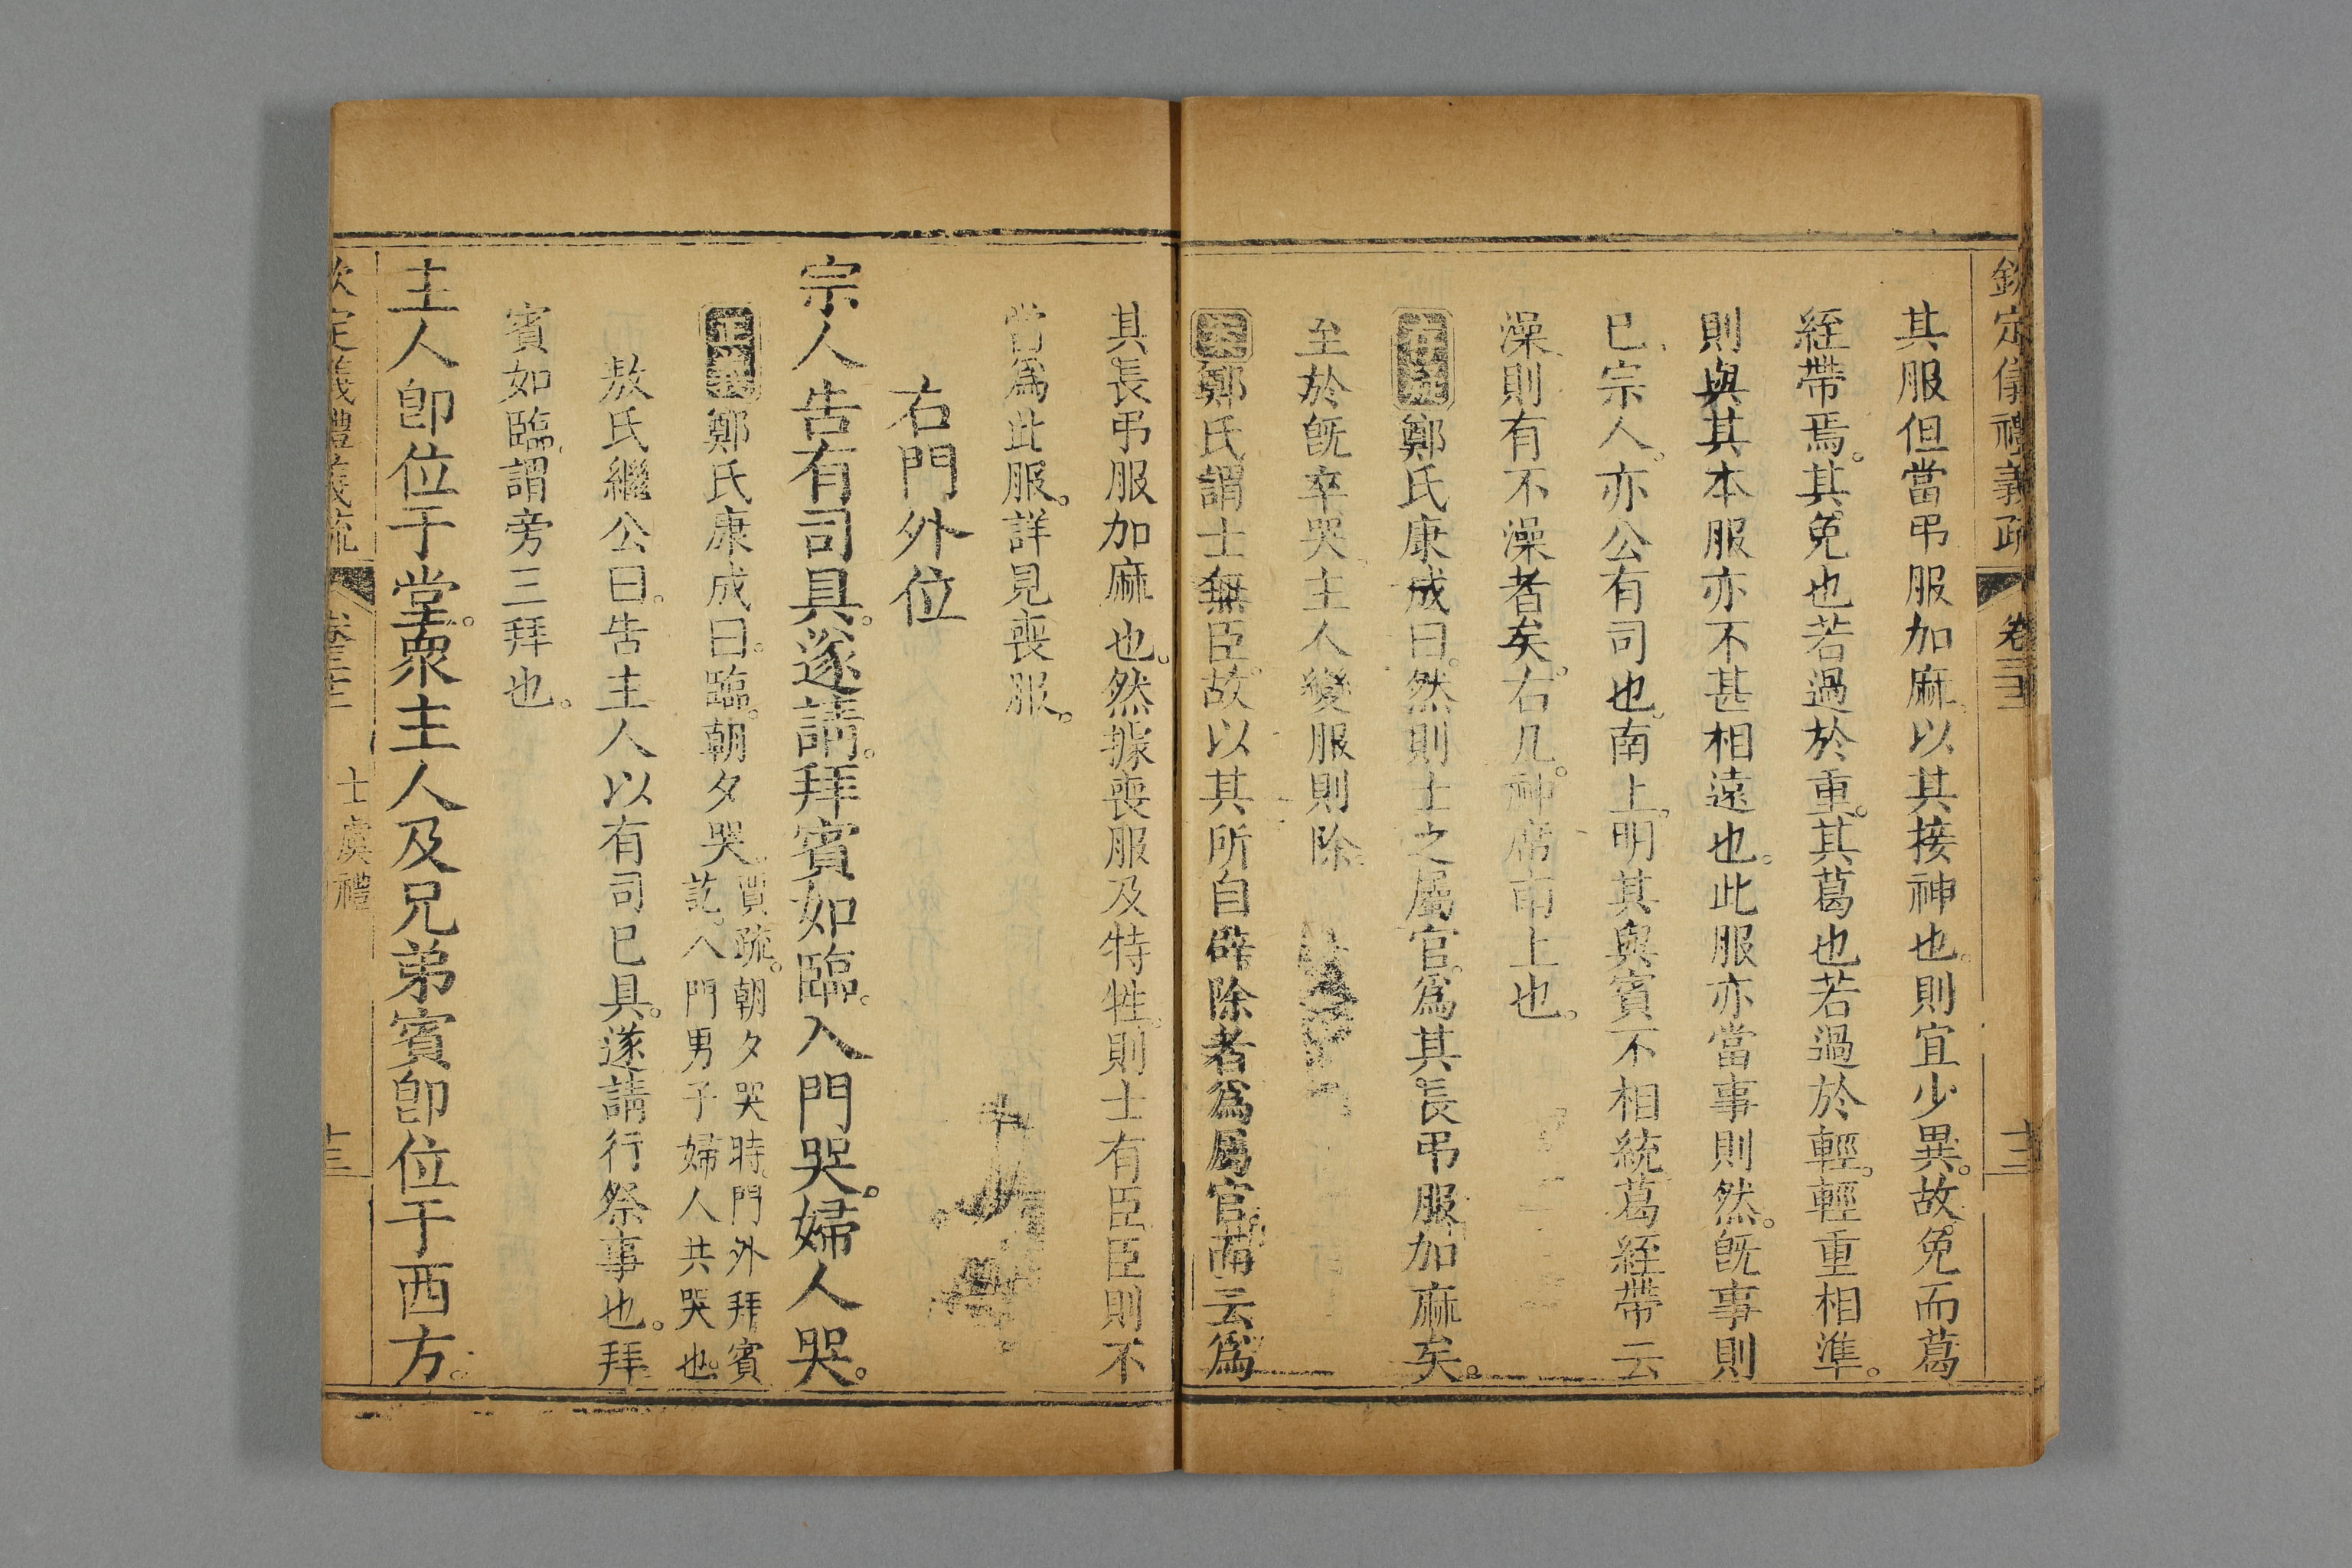 欽定儀禮義疏 卷三十三 十三
其服但當弔服加麻以其接神也則宜少異故免而葛
絰帶焉其免也若過於重其葛也若過於輕輕重相準
則與其本服亦不甚相遠也此服亦當事則然旣事則
已宗人亦公有司也南上明其與賓不相統葛絰帶云
澡則有不澡者矣右几神席南上也
鄭氏康成曰然則士之屬官爲其長弔服加麻矣
至於旣卒哭主人變服則除
案鄭氏謂士無臣故以其所自辟除者爲屬官而云爲
其長弔服加麻也然據喪服及特牲則士有臣臣則不
當爲此服詳見喪服
右門外位
宗人告有司具遂請拜賓如臨入門哭婦人哭
正義鄭氏康成曰臨朝夕哭賈疏朝夕哭時門外拜賓
訖入門男子婦人共哭也
敖氏繼公曰告主人以有司已具遂請行祭事也拜
賓如臨謂旁三拜也
主人卽位于堂衆主人及兄弟賓卽位于西方
欽定儀禮義疏 士虞禮 十三